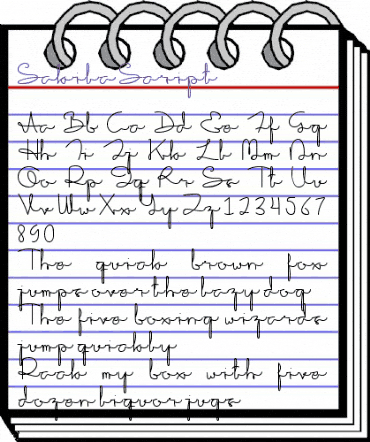 Sakiba Script
Aa Bb Cc Dd Ee Ff Gg
Hh Ii Jj Kk Ll Mm Nn
Oo Pp Qq Rr Ss Tt Uu
Vv Ww Xx Yy Zz 1234567
890
The quick brown fox
jumps over the lazy dog
The five boxing wizards
jump quickly
Pack my box with five
dozen liquor jugs